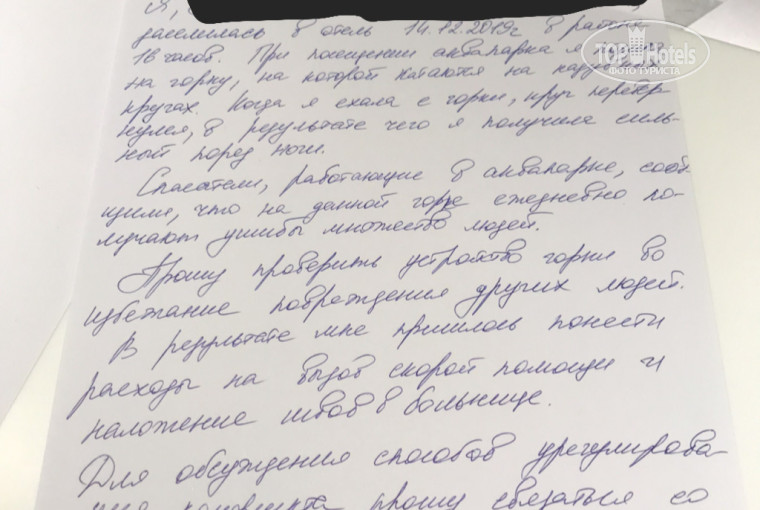 Я,
заселилась в отель 14.12.2019г в районе
16 часов. При посещении аквапарка я
на горку, на которой катаются на надувных
кругах. Когда я ехала с горки, круг перевер-
нулся, в результате чего я получила силь-
ный порез ноги.
Спасатели, работающие в аквапарке, сооб-
щили, что на данной горке ежедневно по-
лучают ушибы множество людей.
Прошу проверить устройство горки во
избежание повреждения других людей.
В результате мне пришлось понести
расходы на вызов скорой помощи и
наложение швов в больнице.
Для обсуждения способов урегулирова-
ния конфликта прошу связаться со
TOPHotels
ФОТО ТУРИСТА